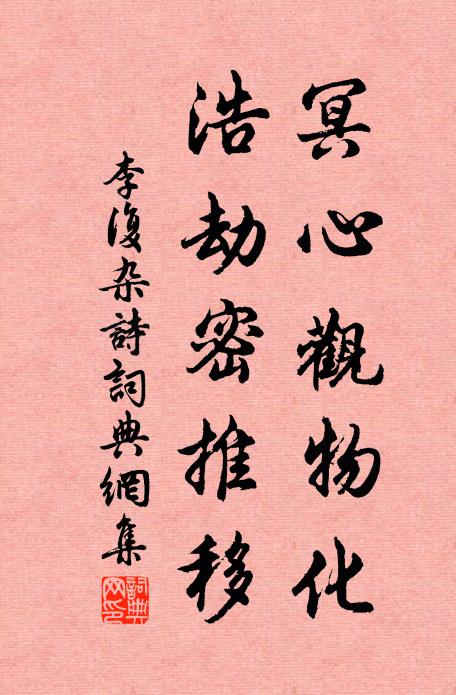 冥心觀物化
浩劫密推移
李復杂詩詞典網集
詞典網印